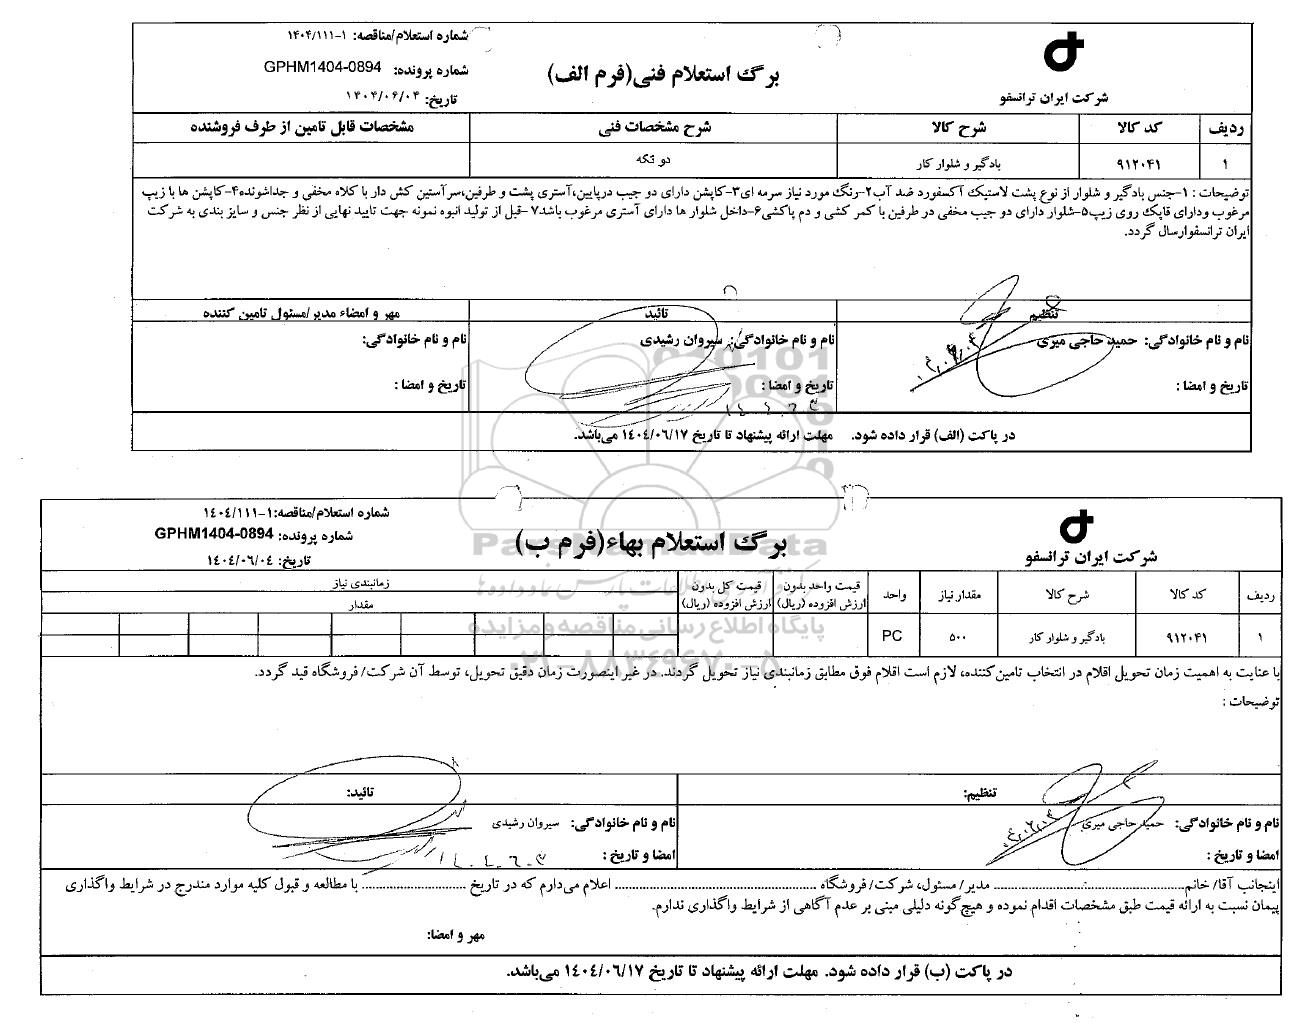 شماره استعلام/مناقصه: ۱-۱۴۰۴/۱۱۱
برگ استعلام فنی(فرم الف)
شماره پرونده: GPHM1404-0894
شرکت ایران ترانسفو
تاریخ: ۱۴۰۴/۰۶/۰۴
ردیف کد کالا شرح کالا شرح مشخصات فنی مشخصات قابل تامین از طرف فروشنده
۱ ۹۱۲۰۴۱ بادگیر و شلوار کار دو تکه
توضیحات : ۱-جنس بادگیر و شلوار از نوع پشت لاستیک آکسفورد ضد آب۲-رنگ مورد نیاز سرمه ای۳-کاپشن دارای دو جیب درپایین،آستری پشت و طرفین،سرآستین کش دار با کلاه مخفی و جداشونده۴-کاپشن ها با زیپ
مرغوب ودارای قاپک روی زیپ۵-شلوار دارای دو جیب مخفی در طرفین با کمر کشی و دم پاکشی۶-داخل شلوار ها دارای آستری مرغوب باشد۷-قبل از تولید انبوه نمونه جهت تایید نهایی از نظر جنس و سایز بندی به شرکت
ایران ترانسفوارسال گردد.
تنظیم تائید مهر و امضاء مدیر/مسئول تامین کننده
نام و نام خانوادگی: حمید حاجی میری نام و نام خانوادگی: سیروان رشیدی نام و نام خانوادگی:
تاریخ و امضا : تاریخ و امضا : تاریخ و امضا :
۱۴۰۴.۶.۳
در پاکت (الف) قرار داده شود. مهلت ارائه پیشنهاد تا تاریخ ۱۴۰۴/۰۶/۱۷ می‌باشد.
شماره استعلام/مناقصه:۱-۱۴۰۴/۱۱۱
شماره پرونده: GPHM1404-0894
برگ استعلام بهاء(فرم ب)
شرکت ایران ترانسفو
تاریخ: ۱۴۰۴/۰۶/۰۴
ردیف کد کالا شرح کالا مقدار نیاز واحد قیمت واحد بدون ارزش افزوده (ریال) قیمت کل بدون ارزش افزوده (ریال) زمانبندی نیاز
مقدار
۱ ۹۱۲۰۴۱ بادگیر و شلوار کار ۵۰۰ PC
پایگاه اطلاع رسانی مناقصه و مزایده
۰۲۱-۸۸۳۴۹۶۷۰-۵
با عنایت به اهمیت زمان تحویل اقلام در انتخاب تامین‌کننده، لازم است اقلام فوق مطابق زمانبندی نیاز تحویل گردند. در غیر اینصورت زمان دقیق تحویل، توسط آن شرکت/ فروشگاه قید گردد.
توضیحات :
تنظیم: تائید:
نام و نام خانوادگی: حمید حاجی میری نام و نام خانوادگی: سیروان رشیدی
امضا و تاریخ : امضا و تاریخ :
۱۴۰۴.۶.۳
اینجانب آقا/ خانم........................ مدیر/ مسئول، شرکت/ فروشگاه ........................ اعلام می‌دارم که در تاریخ ........................ با مطالعه و قبول کلیه موارد مندرج در شرایط واگذاری
پیمان نسبت به ارائه قیمت طبق مشخصات اقدام نموده و هیچ‌گونه دلیلی مبنی بر عدم آگاهی از شرایط واگذاری ندارم.
مهر و امضا:
در پاکت (ب) قرار داده شود. مهلت ارائه پیشنهاد تا تاریخ ۱۴۰۴/۰۶/۱۷ می‌باشد.